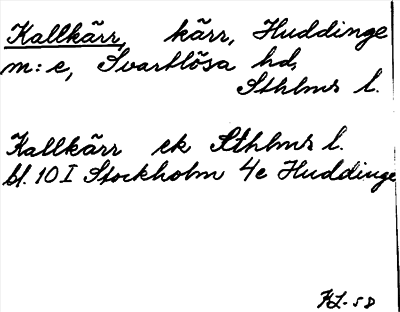 Kallkärr, kärr, Huddinge
m:e, Svartlösa hd,
Sthlms l.
Kallkärr ek Sthlms l.
bl. 10 I Stockholm 4e Huddinge
HL-58